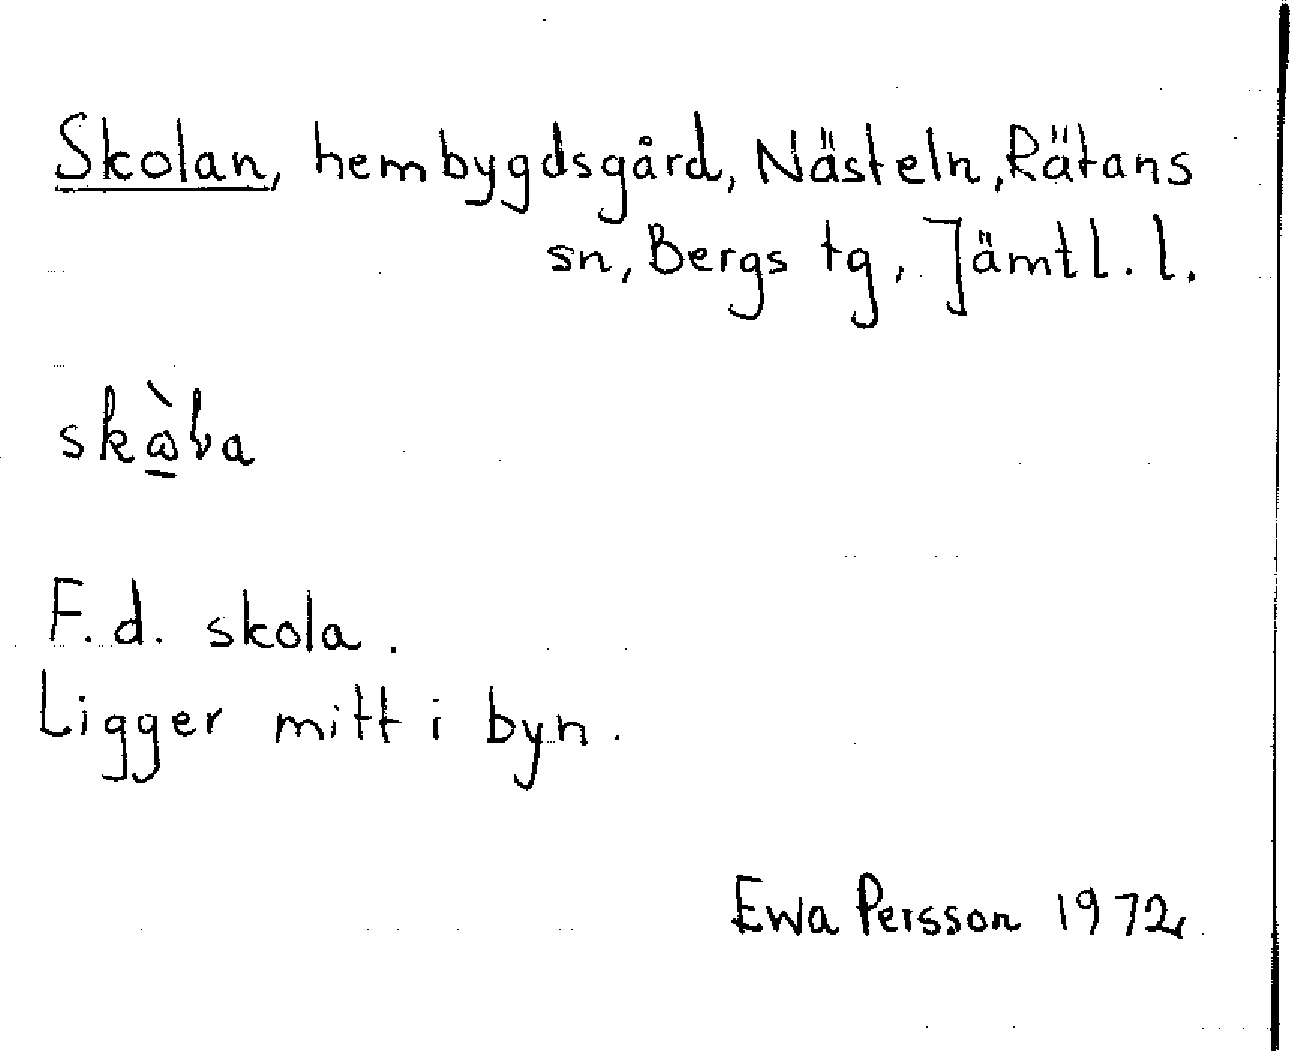 Skolan, hembygdsgård, Nästeln, Rätans
sn, Bergs tg, Jämtl. l.
F.d. skola.
Ligger mitt i byn.
Ewa Persson 1972.